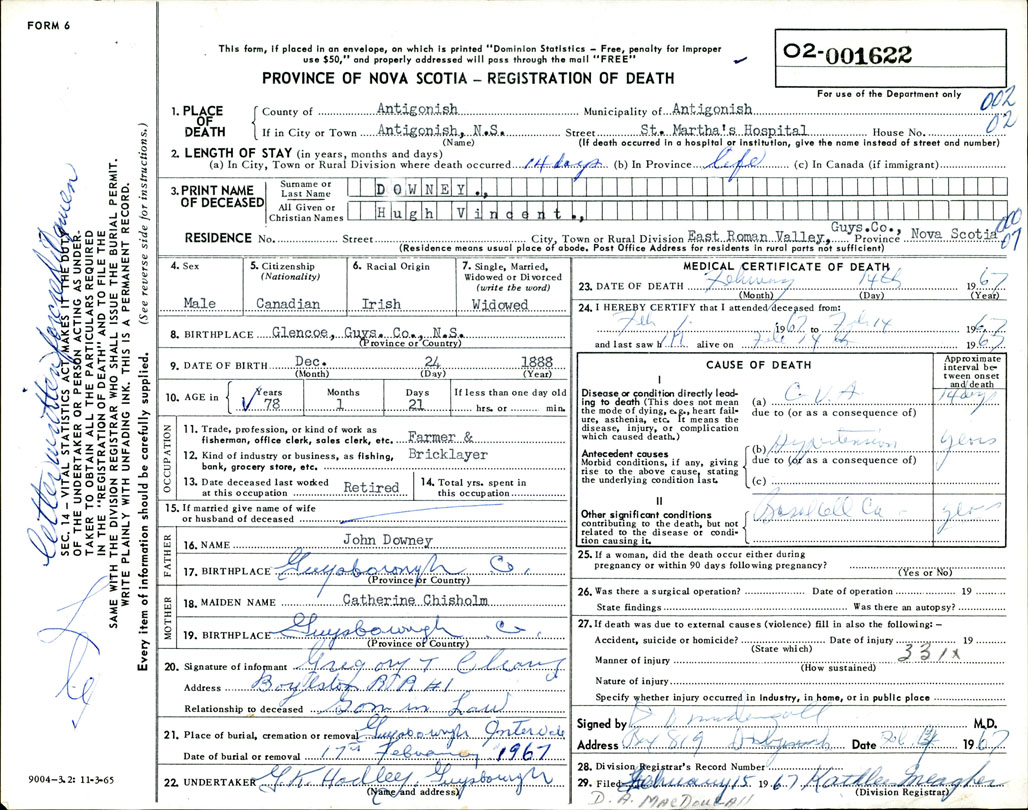 FORM 6
This form, if placed in an envelope, on which is printed "Dominion Statistics – Free, penalty for improper
use $50," and properly addressed will pass through the mail "FREE"
PROVINCE OF NOVA SCOTIA – REGISTRATION OF DEATH
02-001622
For use of the Department only
002
02
1. PLACE OF DEATH
County of Antigonish Municipality of Antigonish
If in City or Town Antigonish, N.S. Street St. Martha's Hospital House No.
(Name) (If death occurred in a hospital or institution, give the name instead of street and number)
2. LENGTH OF STAY (in years, months and days)
(a) In City, Town or Rural Division where death occurred 14 days (b) In Province life (c) In Canada (if immigrant)
3. PRINT NAME OF DECEASED
Surname or Last Name DOWNEY.,
All Given or Christian Names Hugh Vindent.,
000
07
RESIDENCE No. Street City, Town or Rural Division East Roman Valley, Guys.Co., Province Nova Scotia
(Residence means usual place of abode. Post Office Address for residents in rural parts not sufficient)
4. Sex Male
5. Citizenship (Nationality) Canadian
6. Racial Origin Irish
7. Single, Married, Widowed or Divorced (write the word) Widowed
8. BIRTHPLACE Glencoe, Guys. Co., N.S.
(Province or Country)
9. DATE OF BIRTH Dec. 24 1888
(Month) (Day) (Year)
10. AGE in Years 78 Months 1 Days 21 If less than one day old hrs. or min.
OCCUPATION
11. Trade, profession, or kind of work as fisherman, office clerk, sales clerk, etc. Farmer &
12. Kind of industry or business, as fishing, bank, grocery store, etc. Bricklayer
13. Date deceased last worked at this occupation Retired
14. Total yrs. spent in this occupation
15. If married give name of wife or husband of deceased
FATHER
16. NAME John Downey
17. BIRTHPLACE Guysborough Co.
(Province or Country)
MOTHER
18. MAIDEN NAME Catherine Chisholm
19. BIRTHPLACE Guysborough Co.
(Province or Country)
20. Signature of informant Gregory T
Address Boylston RR #1
Relationship to deceased Son in Law
21. Place of burial, cremation or removal Guysborough Intervale
Date of burial or removal 17th February 1967
22. UNDERTAKER G.K. Hadley, Guysborough
(Name and address)
MEDICAL CERTIFICATE OF DEATH
23. DATE OF DEATH February 14th 1967
(Month) (Day) (Year)
24. I HEREBY CERTIFY that I attended deceased from:
Feb 1. 1967 to Feb 14 1967
and last saw him alive on Feb 14th 1967
CAUSE OF DEATH
Approximate interval between onset and death
I
Disease or condition directly leading to death (This does not mean the mode of dying, e.g., heart failure, asthenia, etc. it means the disease, injury, or complication which caused death.)
(a) C.V.A 14 days
due to (or as a consequence of)
Antecedent causes
Morbid conditions, if any, giving rise to the above cause, stating the underlying condition last.
(b) Hypertension years
due to (or as a consequence of)
(c)
II
Other significant conditions contributing to the death, but not related to the disease or condition causing it.
Basal Cell Ca – years
25. If a woman, did the death occur either during pregnancy or within 90 days following pregnancy?
(Yes or No)
26. Was there a surgical operation? Date of operation 19
State findings Was there an autopsy?
27. If death was due to external causes (violence) fill in also the following: –
Accident, suicide or homicide? Date of injury 19
(State which) 331x
Manner of injury
(How sustained)
Nature of injury
Specify whether injury occurred in industry, in home, or in public place
Signed by M.D.
Address Box 819 Date Feb 1967
28. Division Registrar's Record Number
29. Filed February 15 1967 Kathleen Meagher
(Division Registrar)
D. A. MacDougall
9004-3.2: 11-3-65
SEC. 14 – VITAL STATISTICS ACT, MAKES IT THE DUTY
OF THE UNDERTAKER OR PERSON ACTING AS UNDER-
TAKER TO OBTAIN ALL THE PARTICULARS REQUIRED
IN THE "REGISTRATION OF DEATH" AND TO FILE THE
SAME WITH THE DIVISION REGISTRAR WHO SHALL ISSUE THE BURIAL PERMIT.
WRITE PLAINLY WITH UNFADING INK. THIS IS A PERMANENT RECORD.
Every item of information should be carefully supplied. (See reverse side for instructions.)
letter written for